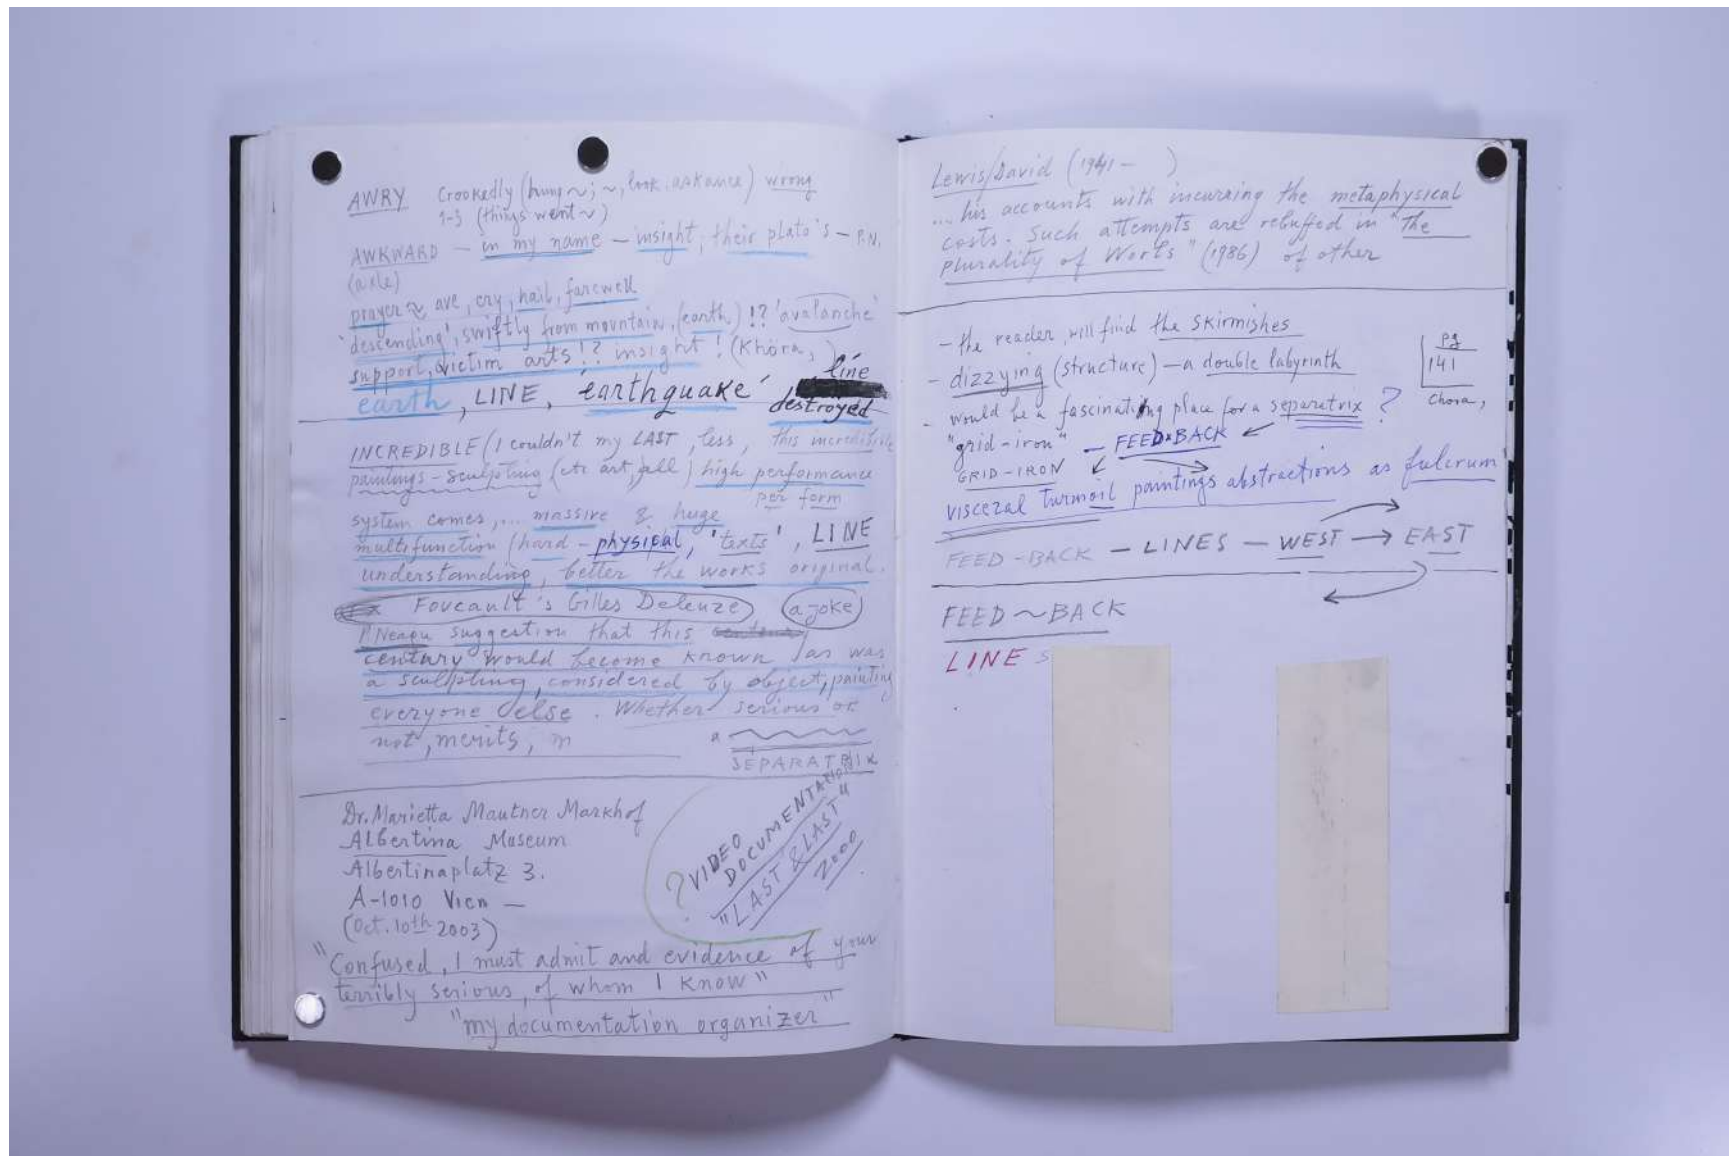 AWRY Crookedly (hung ~; ~, look askance) wrong
1-3 (things went ~)
AWKWARD – in my name – insight, their plato's – P.N.
(axle)
prayer ~ ave, cry, hail, farewell
'descending', swiftly from mountain, (earth) !? 'avalanche'
support, victim arts !? insight ! (Khôra, )
earth, LINE, 'earthquake' line
destroyed
INCREDIBLE (I couldn't my LAST, less, this incredible
paintings – sculpting (etc art, all) high performance
per form
system comes, ... massive & huge
multifunction (hard – physical, 'texts', LINE
understanding, better the works original.
Foucault's Gilles Deleuze) (a joke)
P Neagu suggestion that this
century would become known /as was
a sculpting, considered by object, painting
everyone else. Whether serious or
not, merits, m
a
SEPARATRIX
Dr. Marietta Mautner Markhof
Albertina Museum
Albertinaplatz 3.
A-1010 Vien —
(Oct. 10th 2003)
? VIDEO
DOCUMENTATION
"LAST & LAST"
2000
"Confused, I must admit and evidence of your
terribly serious, of whom I know"
"my documentation organizer"
Lewis/David (1941 – )
... his accounts with incurring the metaphysical
costs. Such attempts are rebuffed in "The
plurality of Worls" (1986) of other
– the reader will find the skirmishes
– dizzying (structure) – a double labyrinth
– would be a fascinating place for a separatrix ?
pg
141
Chora,
"grid-iron" – FEED BACK
GRID-IRON
visceral turmoil paintings abstractions as fulcrum
FEED-BACK – LINES – WEST → EAST
FEED ~ BACK
LINE S